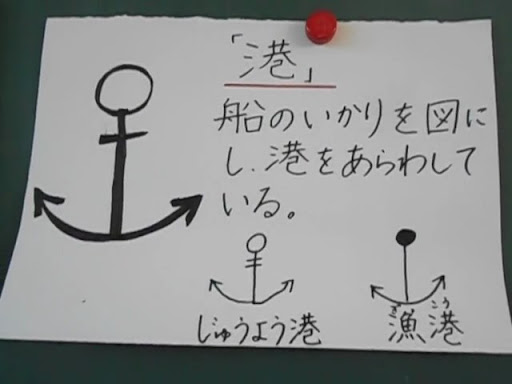 「港」
船のいかりを図に
し、港をあらわして
いる。
じゅうよう港
漁港
ぎょこう